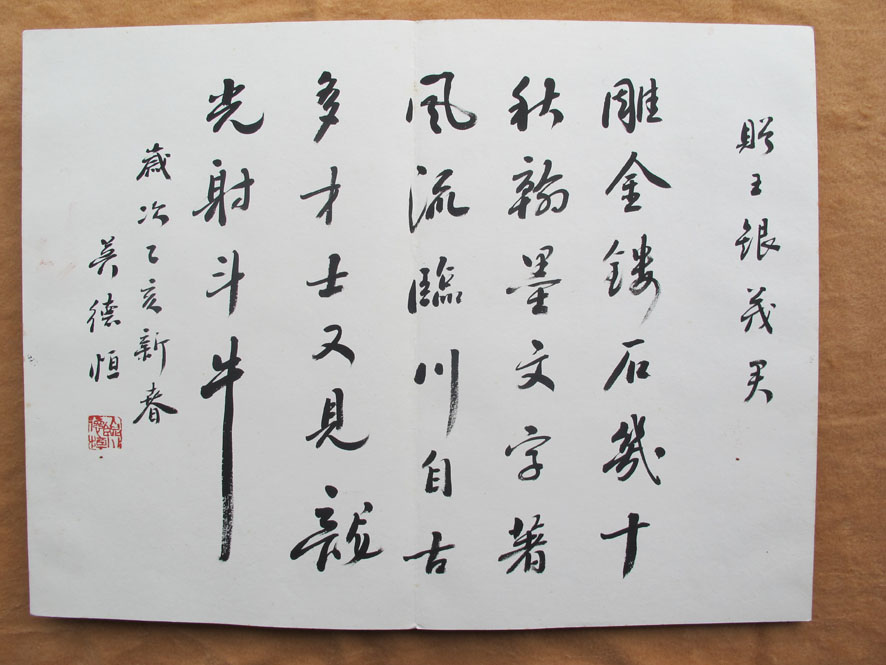 贈王銀茂君
雕金鏤石幾十
秋翰墨文字著
風流臨川自古
多才士又見龍
光射斗牛
歲次乙亥新春
吳德恒